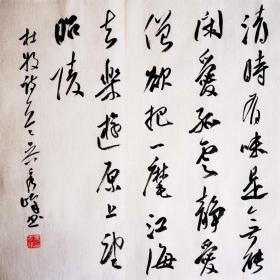 清時有味是無能
閑愛孤雲靜愛
僧欲把一麾江海
去樂遊原上望
昭陵
杜牧詩